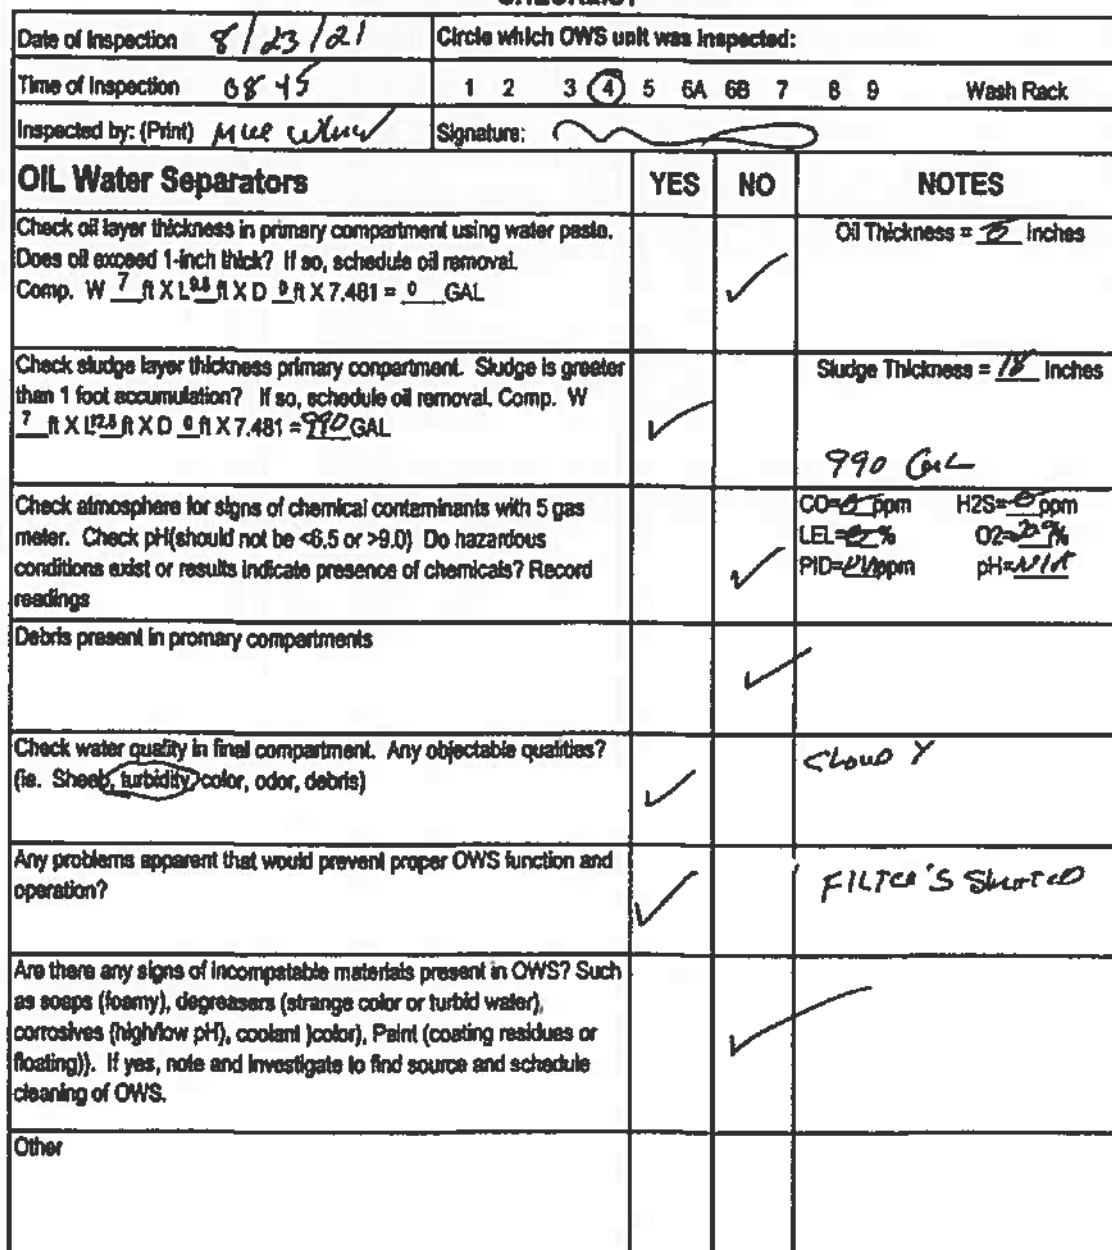 CHECKLIST
Date of Inspection 8/23/21 Circle which OWS unit was inspected:
Time of Inspection 0845 1 2 3 4 5 6A 6B 7 8 9 Wash Rack
Inspected by: (Print) Signature:
OIL Water Separators YES NO NOTES
Check oil layer thickness in primary compartment using water paste. Oil Thickness = 0 Inches
Does oil exceed 1-inch thick? If so, schedule oil removal.
Comp. W 7 ft X L 9.5 ft X D 0 ft X 7.481 = 0 GAL
Check sludge layer thickness primary conpartment. Sludge is greater Sludge Thickness = 18 Inches
than 1 foot accumulation? If so, schedule oil removal. Comp. W
7 ft X L 12.5 ft X D 0 ft X 7.481 = 990 GAL
990 GAL
Check atmosphere for signs of chemical contaminants with 5 gas CO=0 ppm H2S=0 ppm
meter. Check pH(should not be <6.5 or >9.0) Do hazardous LEL=0 % O2=20.9%
conditions exist or results indicate presence of chemicals? Record PID=N/A ppm pH=N/A
readings
Debris present in promary compartments
Check water quality in final compartment. Any objectable qualities? CLOUDY
(ie. Sheen, turbidity, color, odor, debris)
Any problems apparent that would prevent proper OWS function and FILTER'S
operation?
Are there any signs of incompatable materials present in OWS? Such
as soaps (foamy), degreasers (strange color or turbid water),
corrosives (high/low pH), coolant )color), Paint (coating residues or
floating)). If yes, note and investigate to find source and schedule
cleaning of OWS.
Other